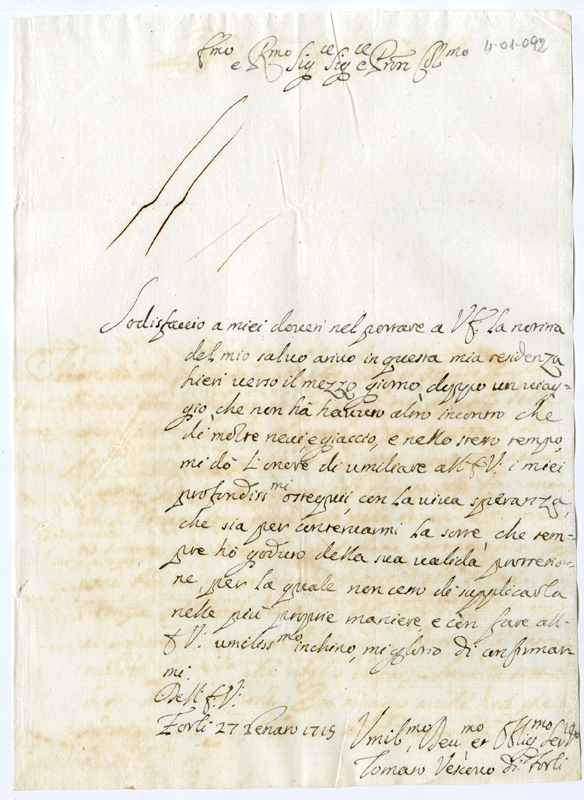 4-01-092
E.mo e R.mo Sig.re Sig.re e Pron Coll.mo
Sodisfaccio a miei doveri nel portare a V.E. la notitia
del mio salvo arivo in questa mia residenza
hieri verso il mezzo giorno, doppo un viag-
gio, che non hà havuto altro incontro che
di molte nevi, e giaccio, e nello stesso tempo,
mi dò l'onore di umiliare all'E.V: i miei
profondiss.mi ossequii, con la viva speranza,
che sia per continuarmi la sorte, che sem-
pre hò goduto della sua valida protterio-
ne, per la quale non cesso di supplicarla
nelle più proprie maniere, e con fare all'
E.V: umiliss.mo inchino, mi glorio di confirmar
mi.
Dell'E.V:
Forlì 27 Genaro 1715
Umil.mo, Dev.mo et Oblig.mo Ser.
Tomaso Vescovo di Forlì